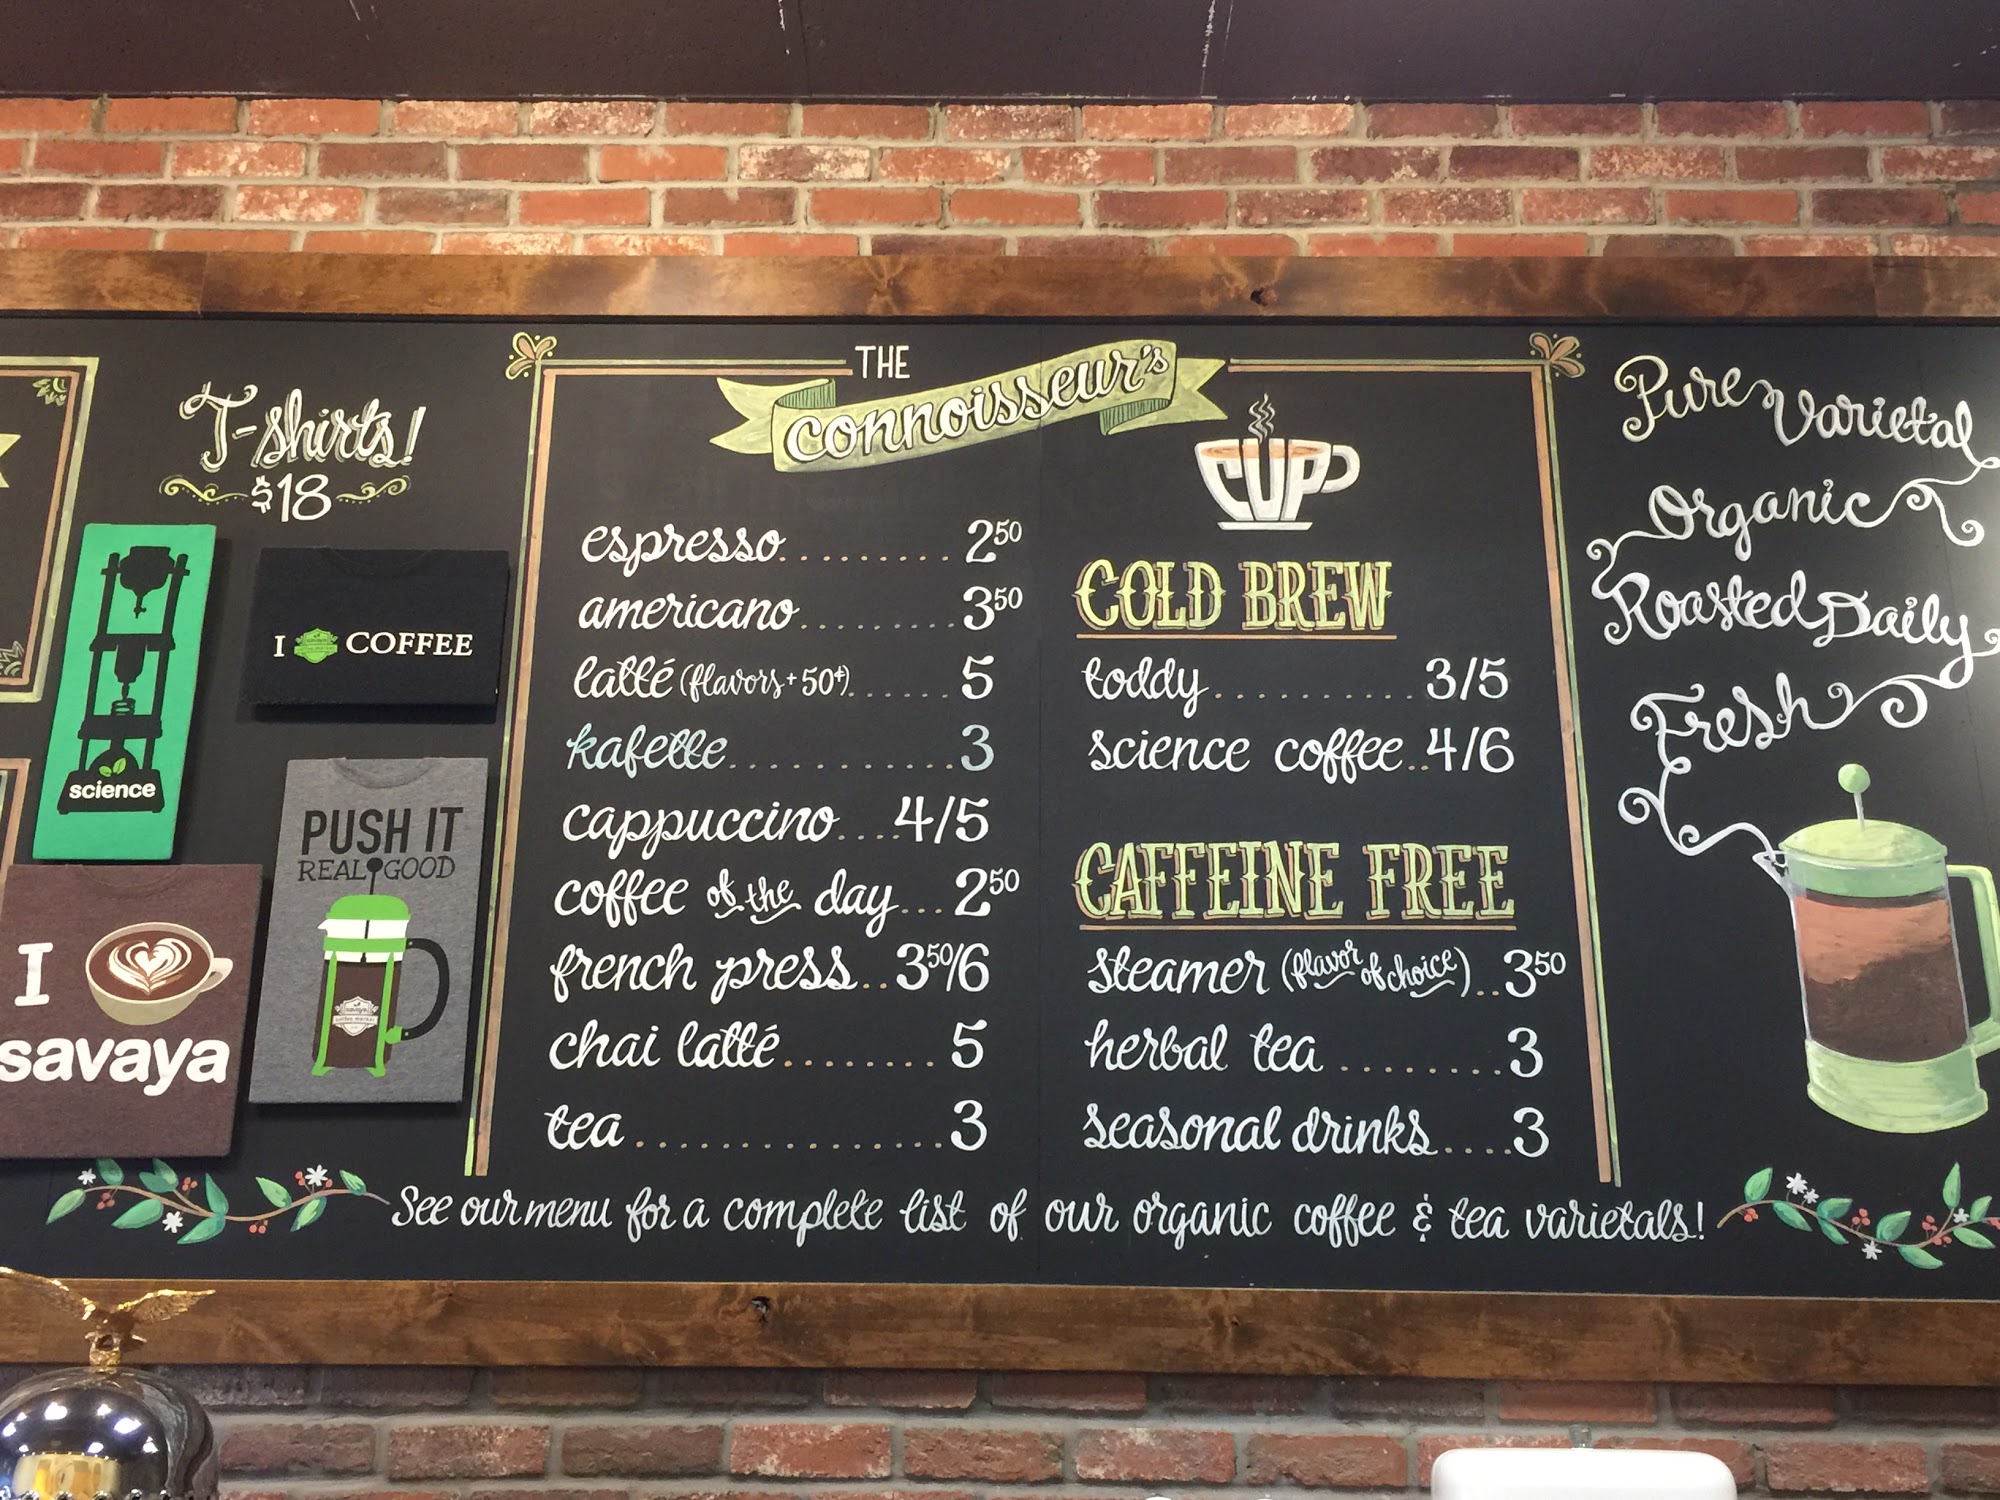 T-shirts!
$18
science
I COFFEE
PUSH IT
REAL GOOD
I
savaya
THE
connoisseur's
CUP
espresso......... 2⁵⁰
americano......... 3⁵⁰
latté (flavors +50¢)...... 5
kafette............ 3
cappuccino....4/5
coffee of the day... 2⁵⁰
french press..3⁵⁰/6
chai latté........ 5
tea ................ 3
COLD BREW
toddy............ 3/5
science coffee..4/6
CAFFEINE FREE
steamer (flavor of choice)..3⁵⁰
herbal tea ........ 3
seasonal drinks....3
See our menu for a complete list of our organic coffee & tea varietals!
Pure Varietal
Organic
Roasted Daily
Fresh